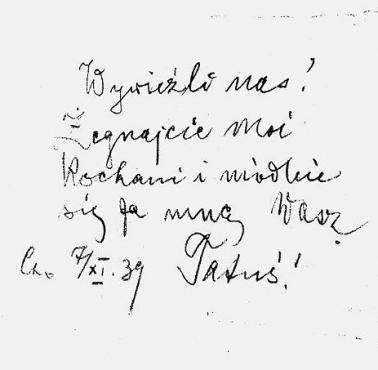 Wywieźli nas!
Żegnajcie Moi
Kochani i módlcie
się za mną Wasz
Cz. 7/XI. 39 Tatuś!